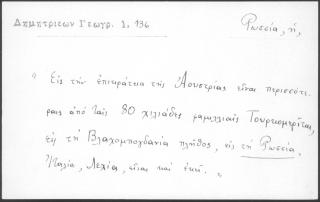 Δημητριεων Γεωγρ. 1, 136
Ρωσσία, ή,
" Εις την επικράτεια της Αουστρίας είναι περισσότε
ραις από ταίς 80 χιλιάδες φαμιλλιαίς Τουρκομερίται,
εις τη Βλαχομπογδανία πλήθος, εις τη Ρωσσία,
Ιταλία, Λεχία, είναι και εκεί. "